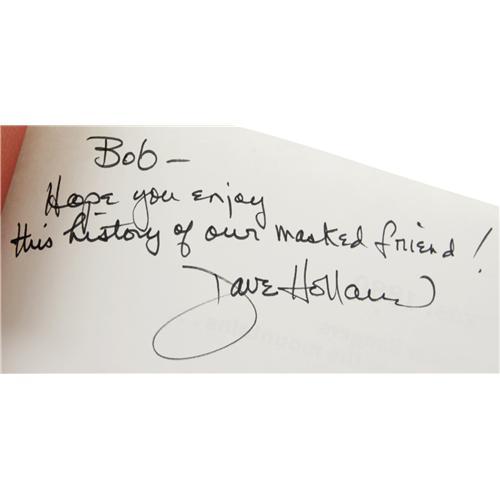 Bob –
Hope you enjoy
this history of our masked friend!
Dave Holland